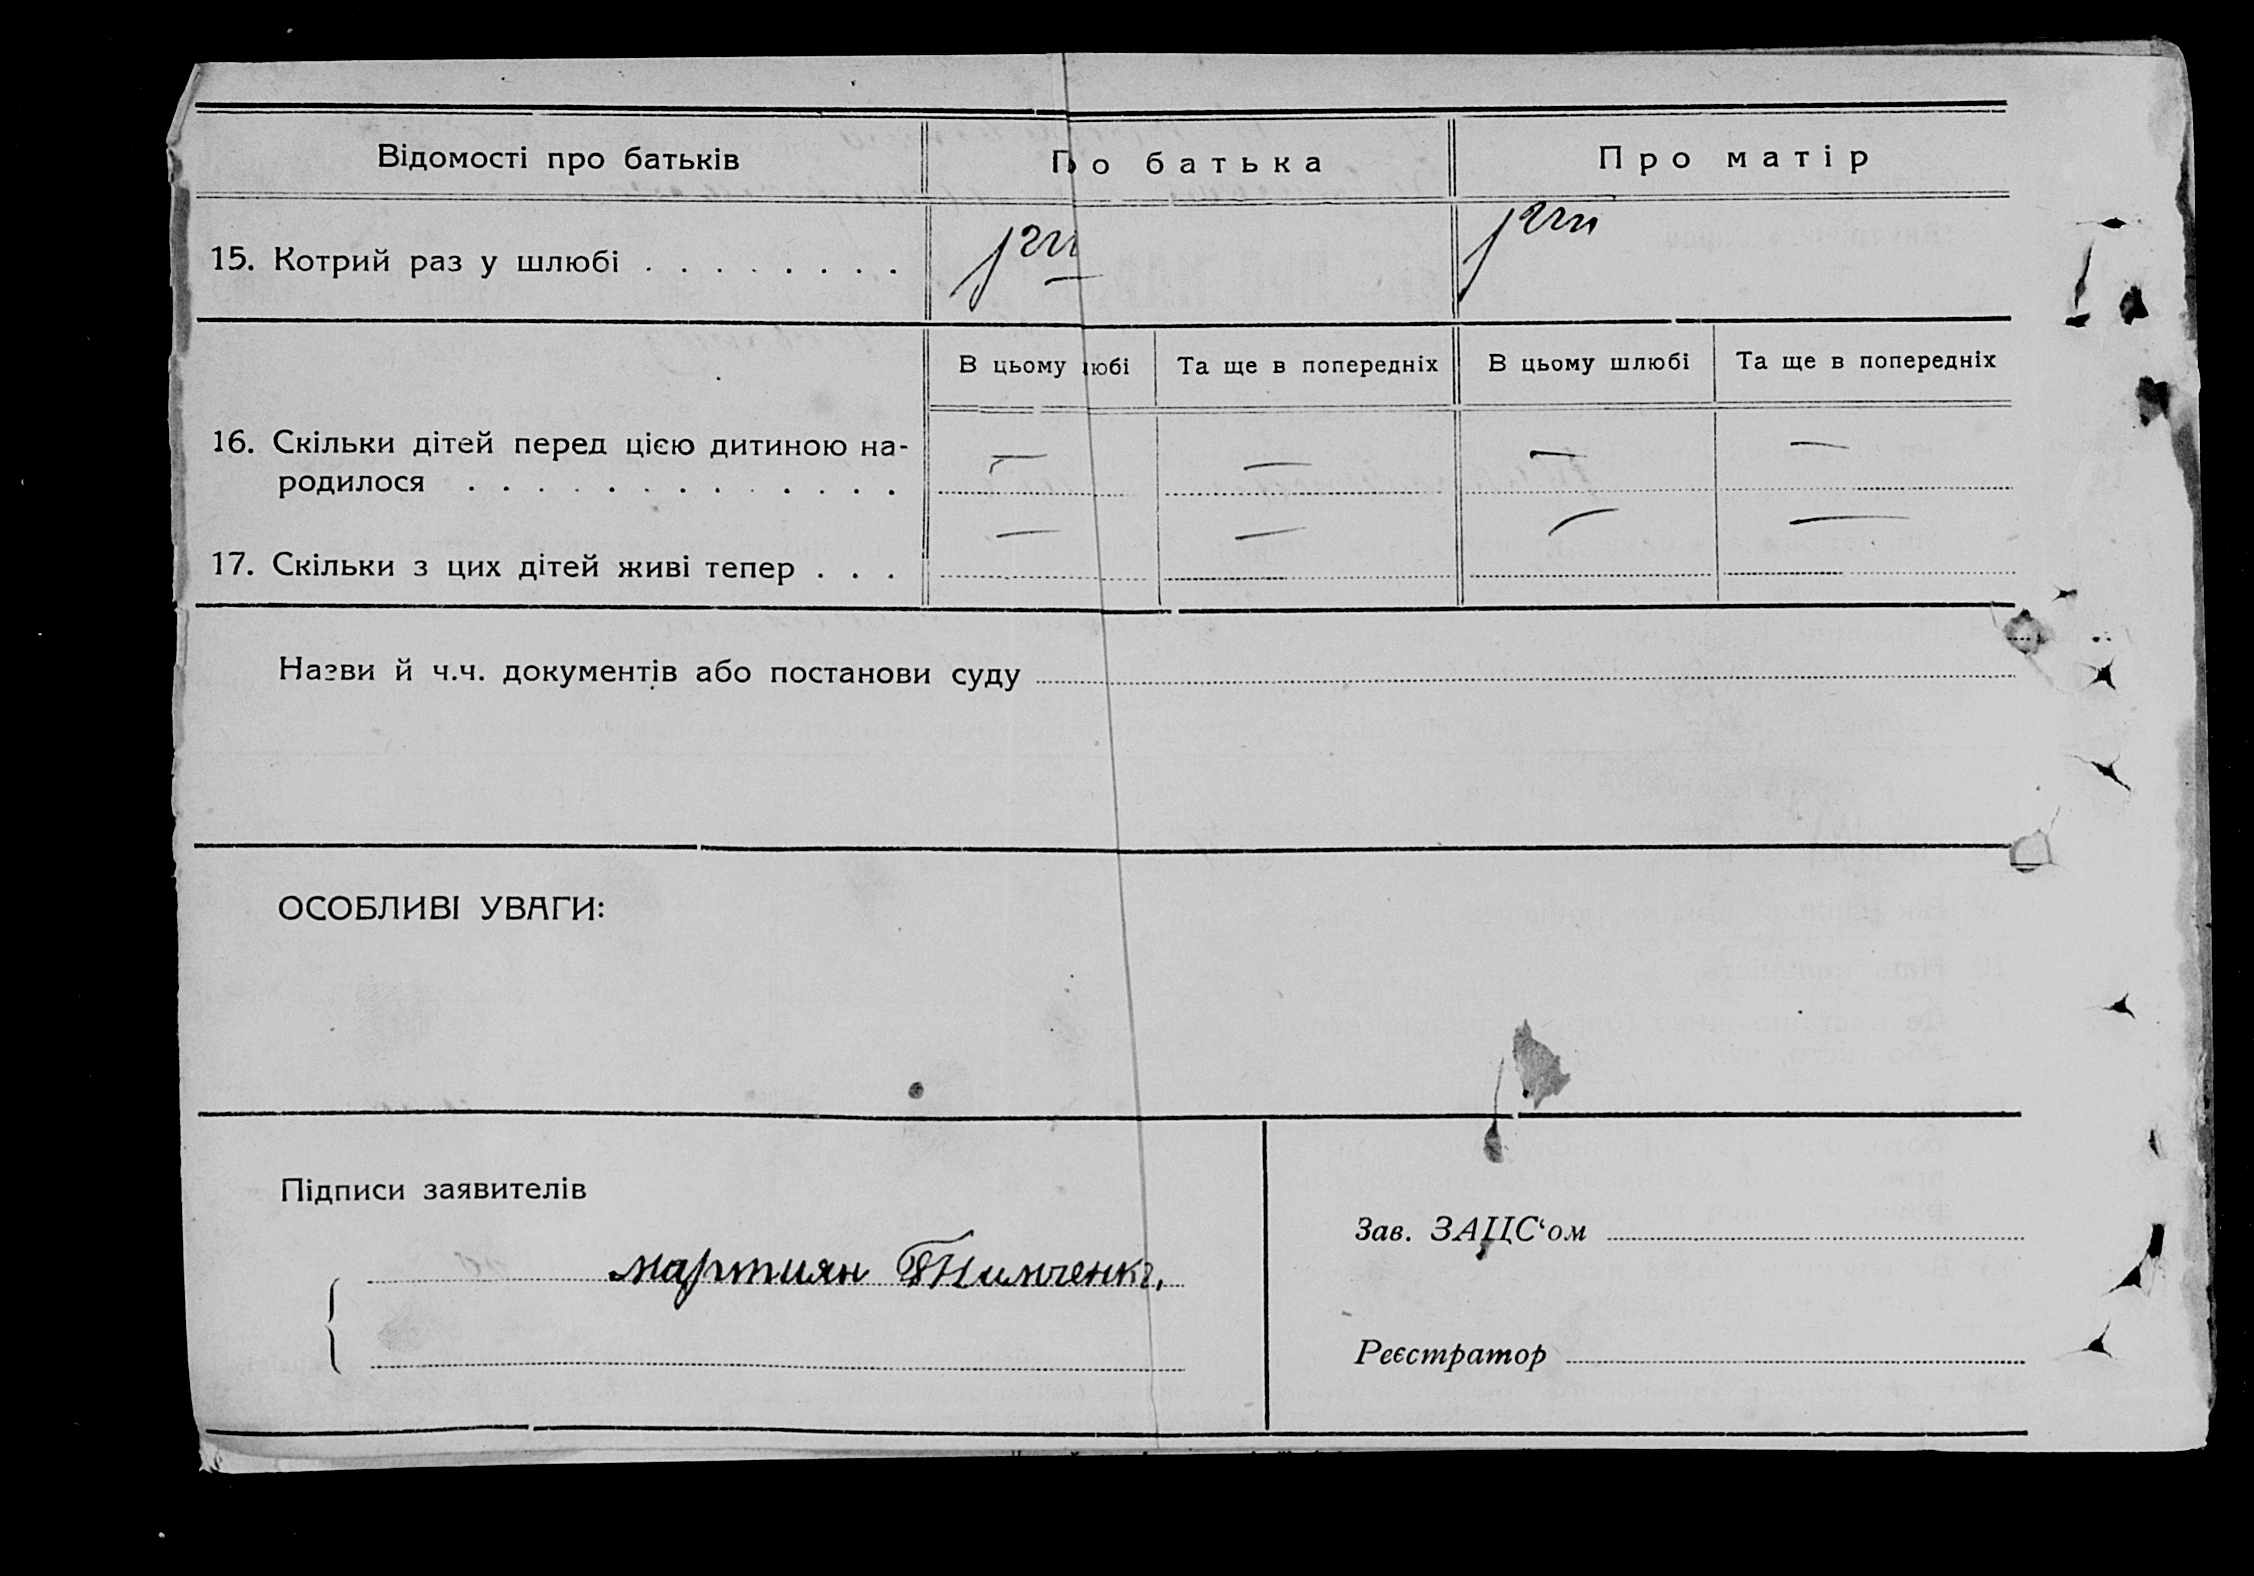 Відомості про батьків По батька Про матір
15. Котрий раз у шлюбі . . . . . . . .
В цьому юбі Та ще в попередніх В цьому шлюбі Та ще в попередніх
16. Скільки дітей перед цією дитиною на-
родилося . . . . . . . . . . . . . — — — —
17. Скільки з цих дітей живі тепер . . . — — — —
Назви й ч.ч. документів або постанови суду
ОСОБЛИВІ УВАГИ:
Підписи заявителів
Зав. ЗАЦС‘ом
мартиян Тимченко
Реєстратор